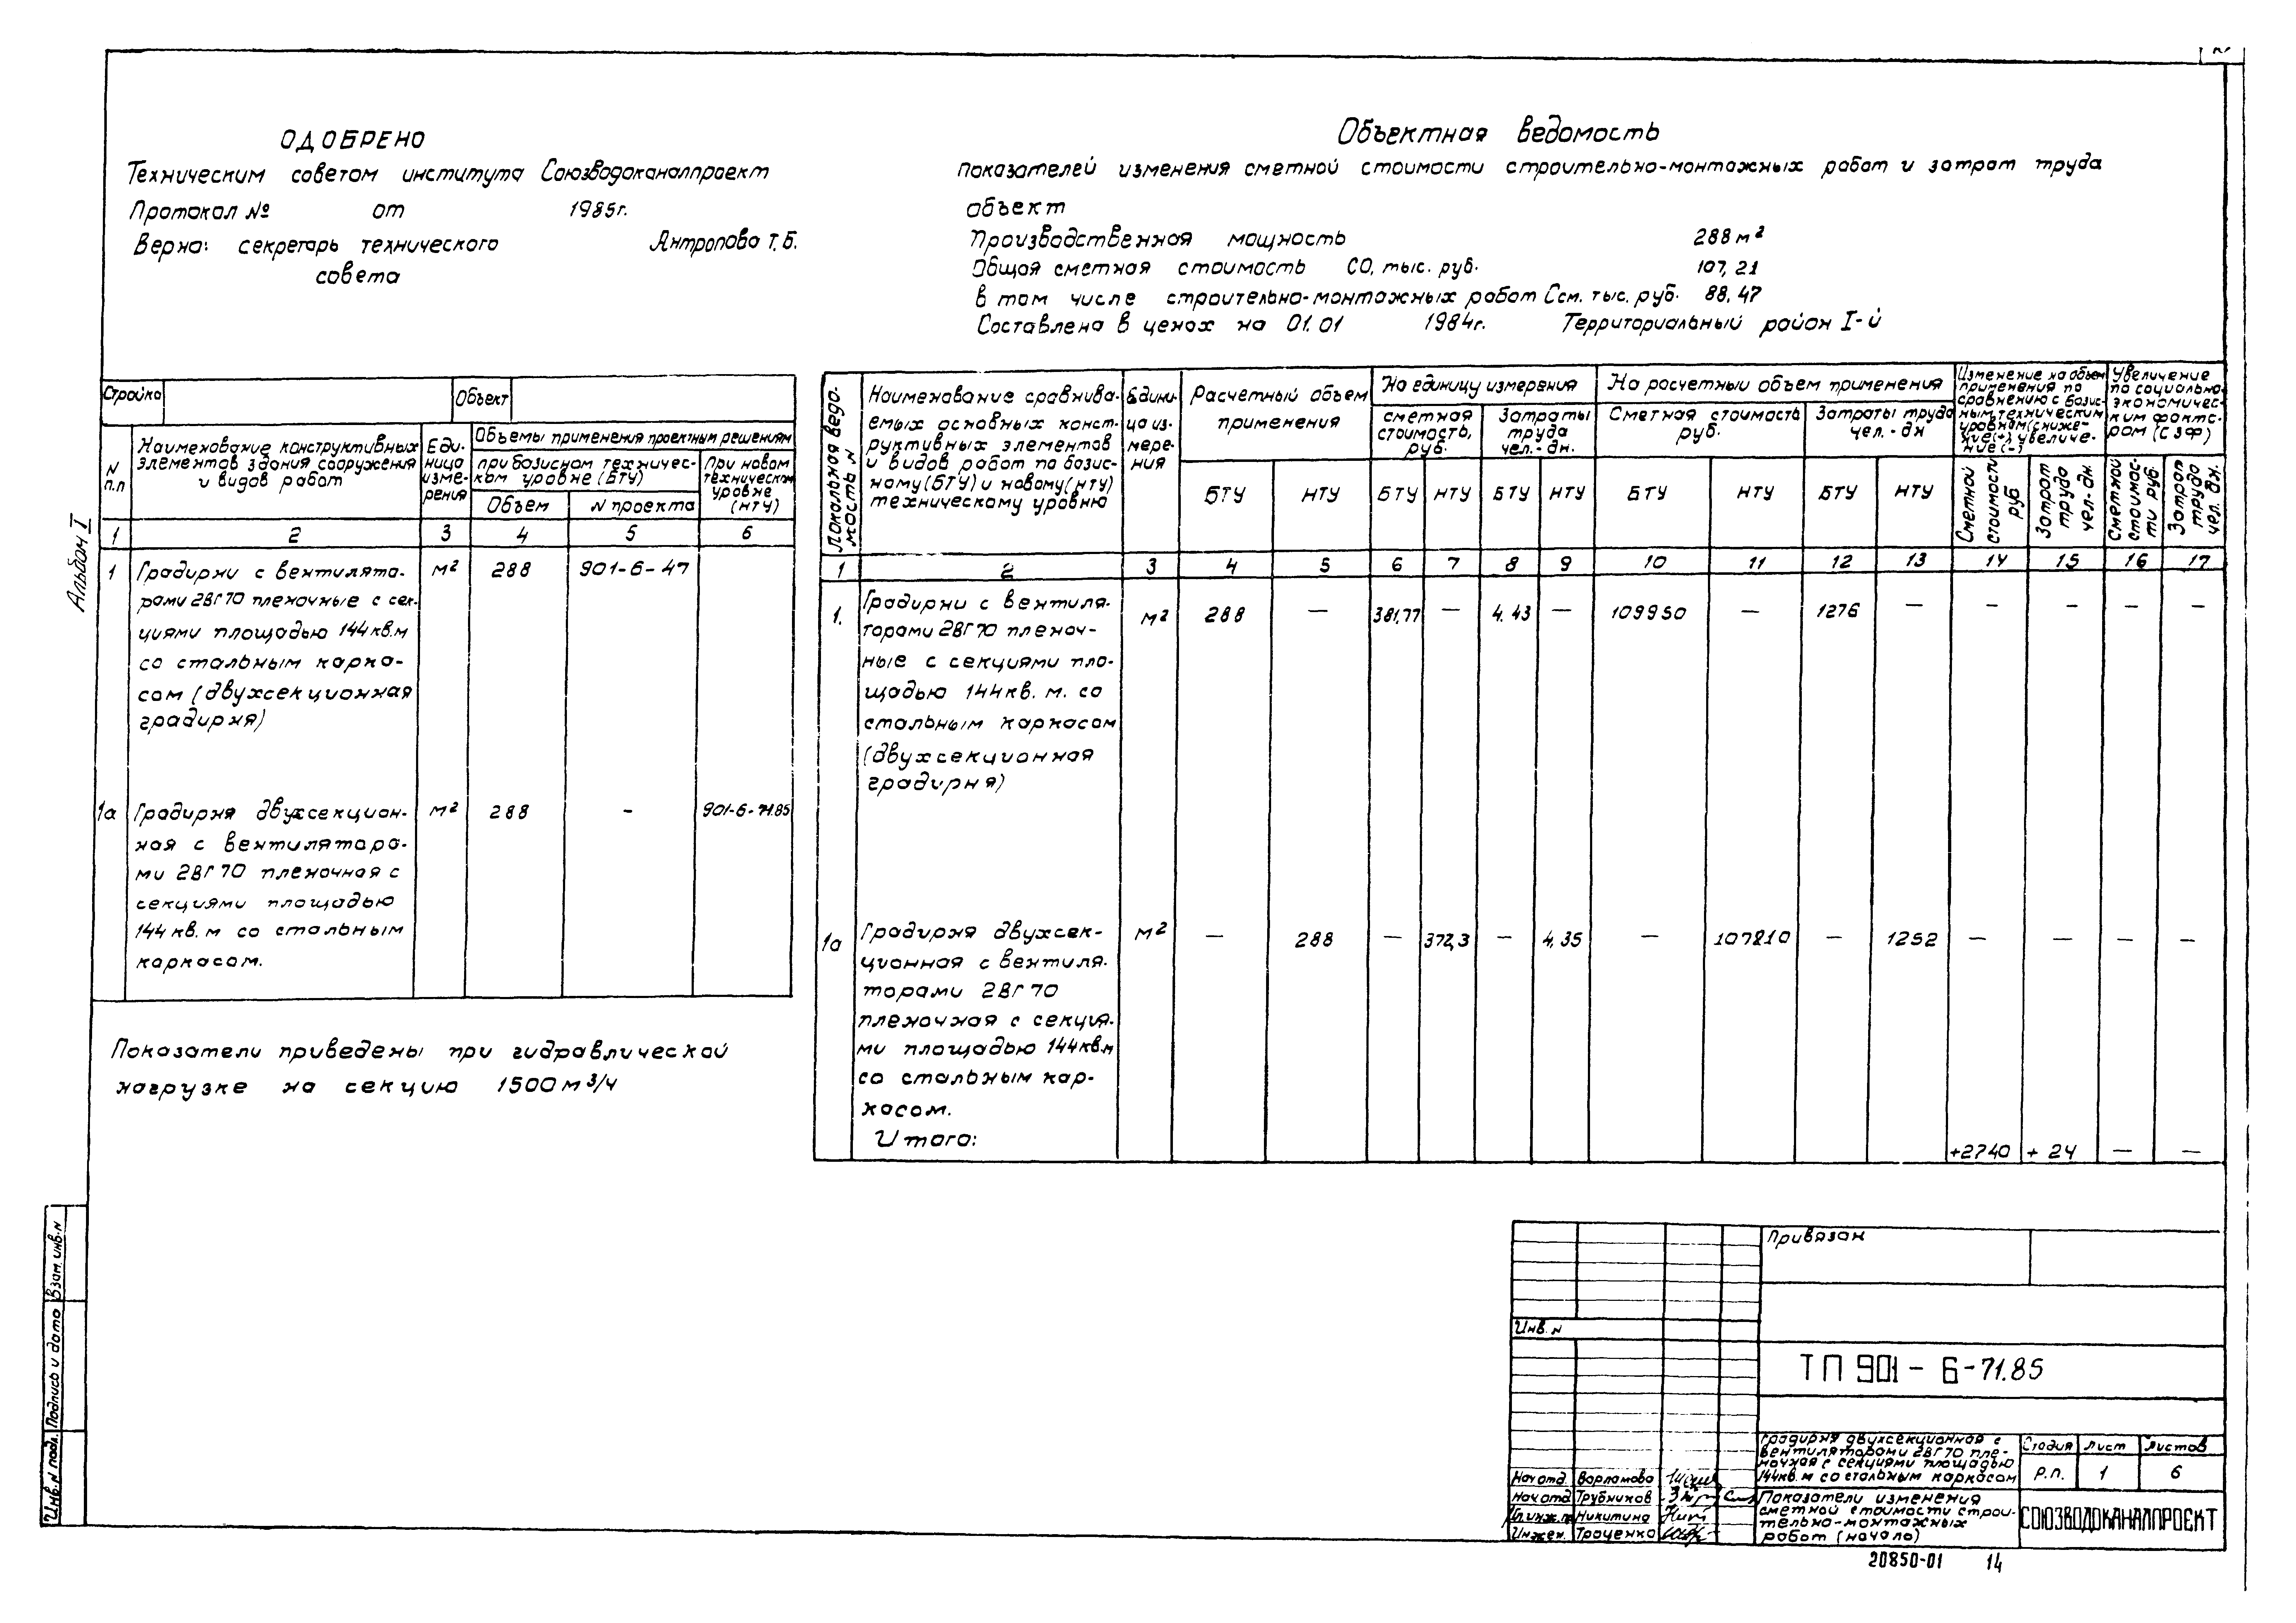 ОДОБРЕНО
Техническим советом института Союзводоканалпроект
Протокол № от 1985г.
Верна: секретарь технического Антропова Т.Б.
совета
Объектная ведомость
показателей изменения сметной стоимости строительно-монтажных работ и затрат труда
объект
Производственная мощность 288 м²
Общая сметная стоимость СО, тыс. руб. 107,21
в том числе строительно-монтажных работ Ссм. тыс. руб. 88,47
Составлена в ценах на 01.01 1984г. Территориальный район I-й
Альбом I
Стройка Объект
N п.п
Наименование конструктивных
элементов здания сооружения
и видов работ
Еди-
ница
изме-
рения
Объемы применения проектным решениям
при базисном техничес-
ком уровне (БТУ)
При новом
техническом
уровне
(НТУ)
Объем N проекта
1 2 3 4 5 6
1 Градирни с вентилято- м² 288 901-6-47
рами 2ВГ70 пленочные с сек-
циями площадью 144кв.м
со стальным карка-
сом (двухсекционная
градирня)
1а Градирня двухсекцион- м² 288 – 901-6-71.85
ная с вентилятора-
ми 2ВГ70 пленочная с
секциями площадью
144 кв.м со стальным
каркасом.
Показатели приведены при гидравлической
нагрузке на секцию 1500 м³/ч
Локальная ведо-
мость N
Наименование сравнива-
емых основных конст-
руктивных элементов
и видов работ по базис-
ному (БТУ) и новому (НТУ)
техническому уровню
Едини-
ца из-
мере-
ния
Расчетный объем
применения
На единицу измерения
сметная
стоимость,
руб.
Затраты
труда
чел.-дн.
На расчетный объем применения
Сметная стоимость
руб.
Затраты труда
чел.-дн
Изменение на объем
применения по
сравнению с базис-
ным техническим
уровнем (сниже-
ние(+), увеличе-
ние(-)
Увеличение
по социально-
экономичес-
ким факто-
ром (СЭФ)
БТУ НТУ БТУ НТУ БТУ НТУ БТУ НТУ БТУ НТУ
Сметной
стоимости
руб
Затрат
труда
чел.-дн
Сметной
стоимос-
ти руб
Затрат
труда
чел. дн.
1 2 3 4 5 6 7 8 9 10 11 12 13 14 15 16 17
1. Градирни с вентиля- м² 288 — 381,77 — 4.43 — 109950 — 1276 — – – – –
торами 2ВГ70 пленоч-
ные с секциями пло-
щадью 144кв. м. со
стальным каркасом
(двухсекционная
градирня)
1а Градирня двухсек- м² — 288 — 372,3 — 4,35 — 107210 — 1252 — — — —
ционная с вентиля-
торами 2ВГ70
пленочная с секция-
ми площадью 144кв.м
со стальным кар-
касом.
Итого: +2740 + 24 — —
Взам. инв. N
Подпись и дата
Инв. N подл.
Привязан
Инв. N
ТП 901-6-71.85
Градирня двухсекционная с
вентиляторами 2ВГ70 пле-
ночная с секциями площадью
144кв.м со стальным каркасом
Стадия Лист Листов
Р.п. 1 6
Нач отд. Варламова
Нач отд Трубников
Гл.инж.пр Никитина
Инжен. Троценко
Показатели изменения
сметной стоимости строи-
тельно-монтажных
работ (начало)
СОЮЗВОДОКАНАЛПРОЕКТ
20850-01 14